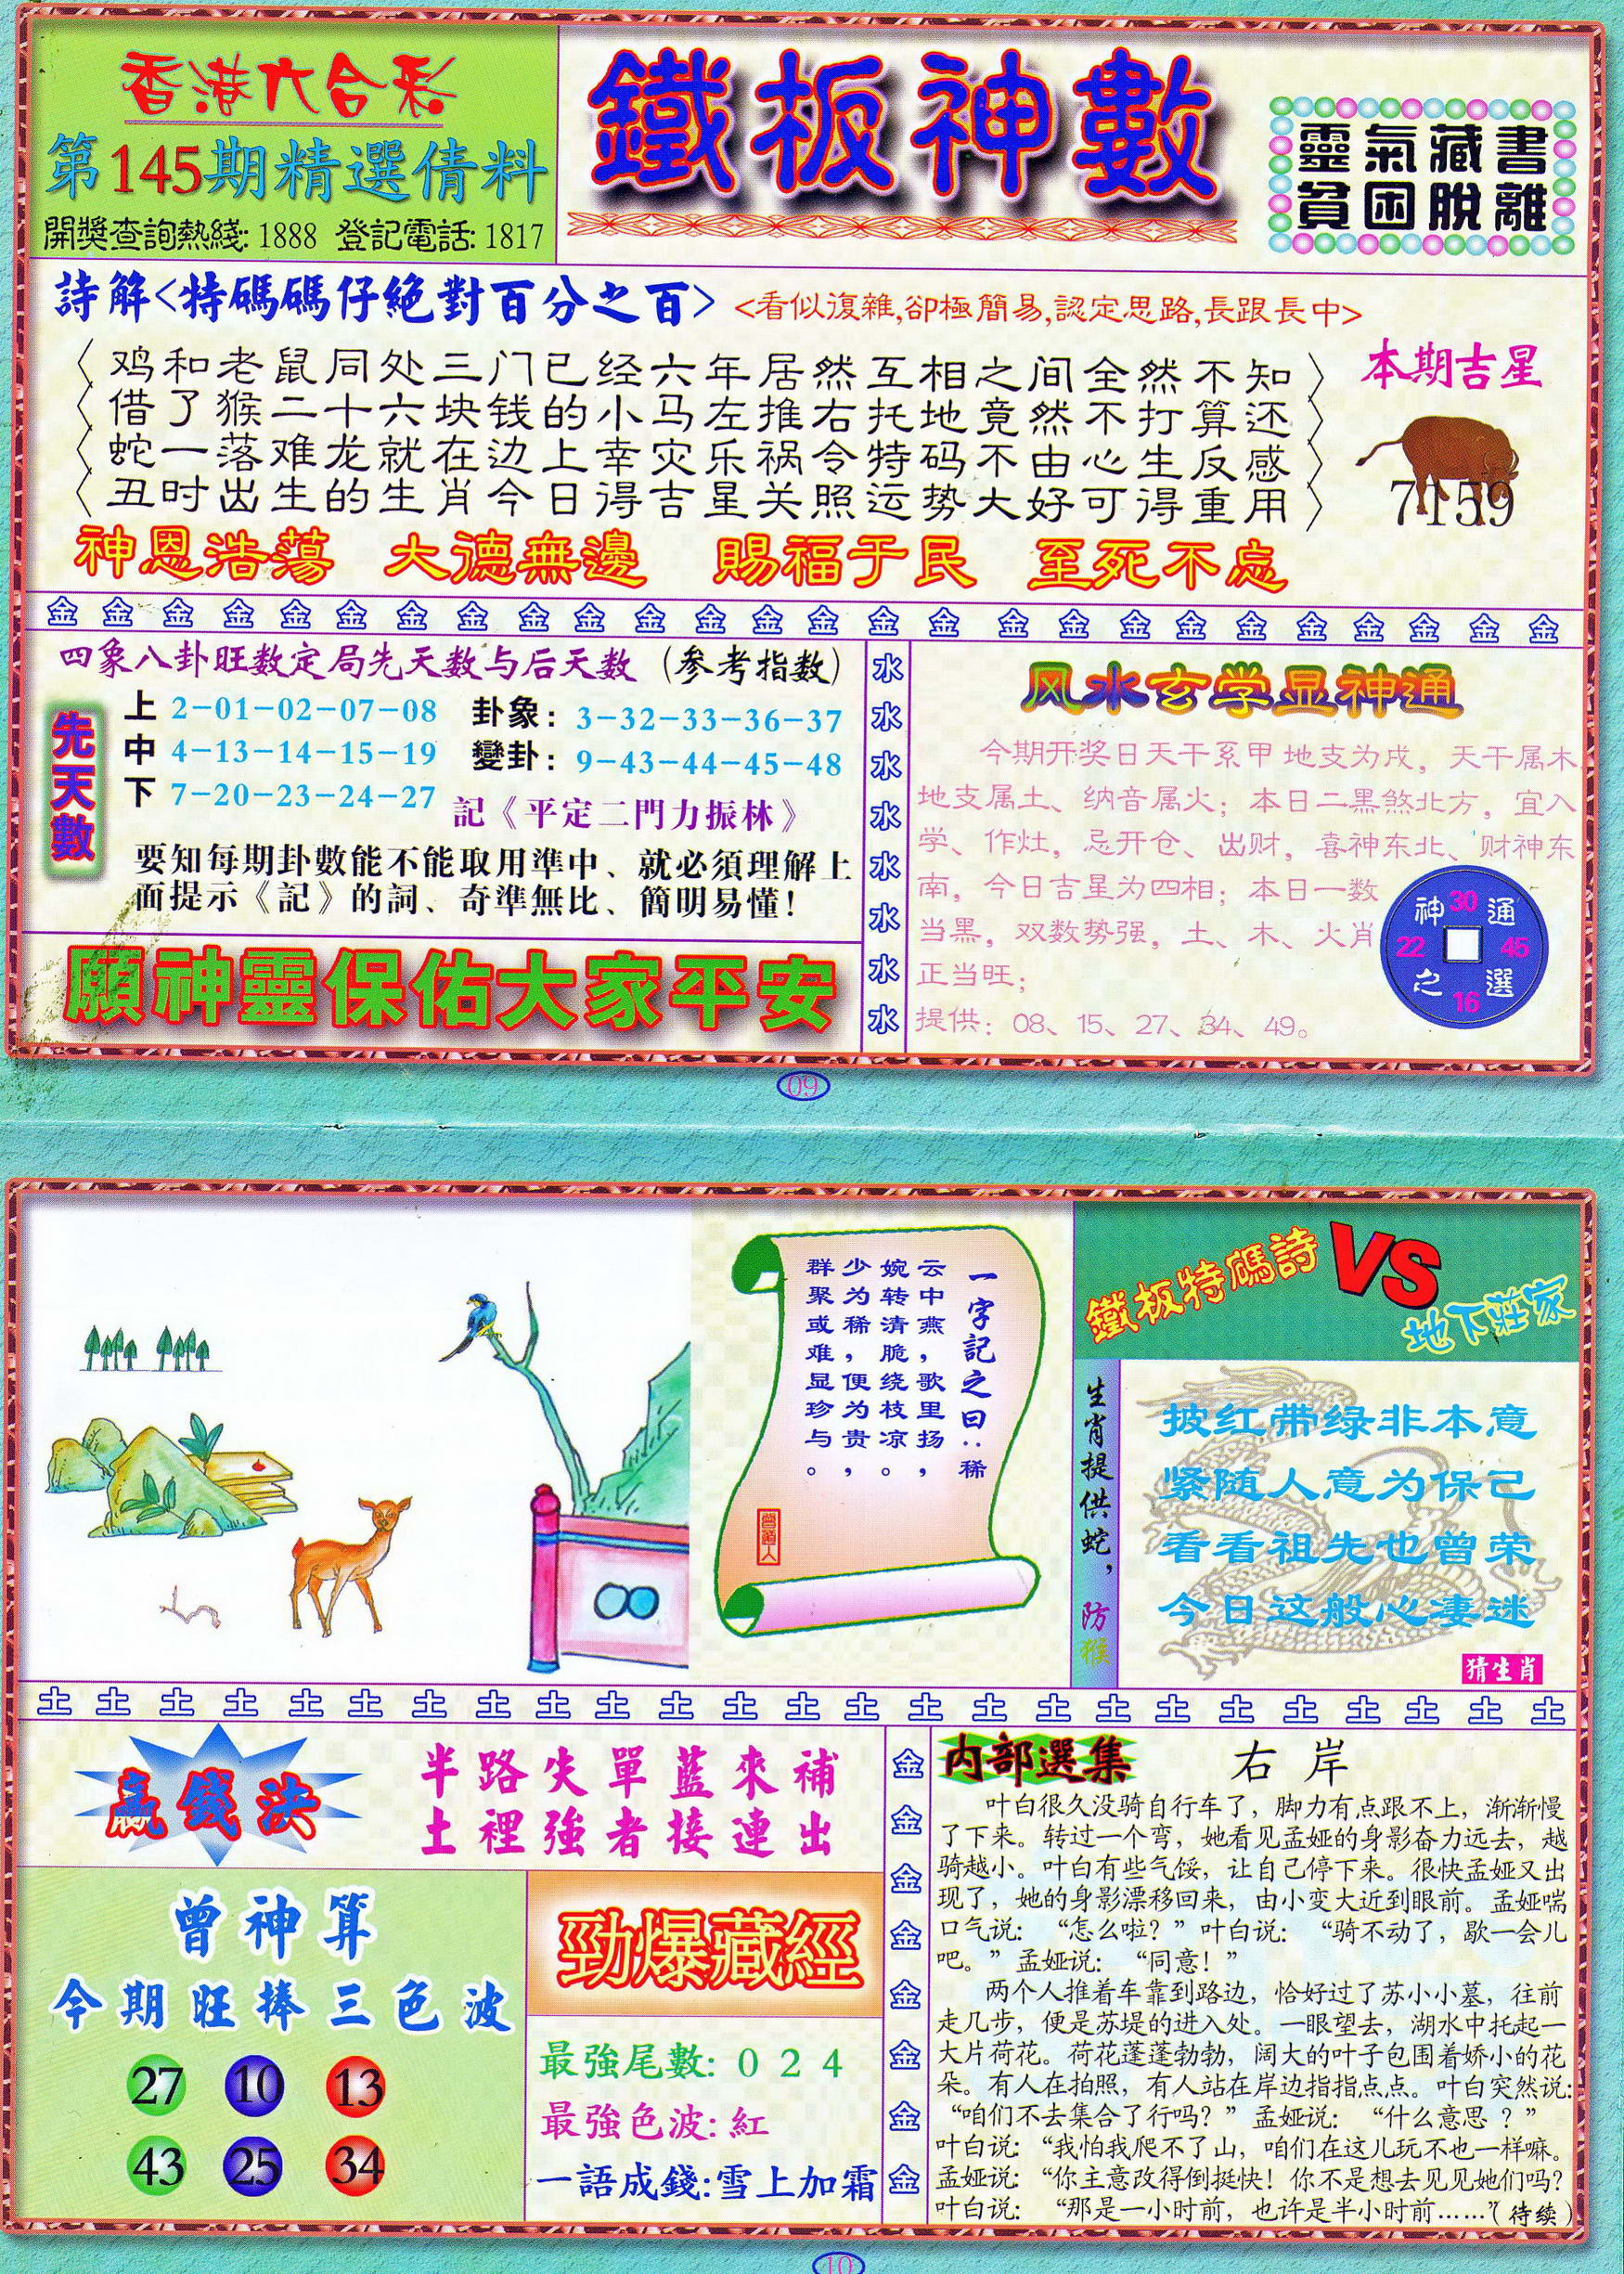 香港六合彩
第145期精選倩料
開獎查詢熱綫: 1888 登記電話: 1817
鐵板神數
靈氣藏書
貧困脫離
詩解<特碼碼仔絕對百分之百>
<看似復雜,卻極簡易,認定思路,長跟長中>
鸡和老鼠同处三门已经六年居然互相之间全然不知
借了猴二十六块钱的小马左推右托地竟然不打算还
蛇一落难龙就在边上幸灾乐祸令特码不由心生反感
丑时出生的生肖今日得吉星关照运势大好可得重用
本期吉星
7159
神恩浩蕩 大德無邊 賜福于民 至死不忘
金 金 金 金 金 金 金 金 金 金 金 金 金 金 金 金 金 金 金 金 金 金 金 金 金 金
四象八卦旺数定局先天数与后天数(参考指数)
先天數
上 2-01-02-07-08 卦象: 3-32-33-36-37
中 4-13-14-15-19 變卦: 9-43-44-45-48
下 7-20-23-24-27 記《平定二門力振林》
要知每期卦數能不能取用準中、就必須理解上
面提示《記》的詞、奇準無比、簡明易懂!
願神靈保佑大家平安
水
水
水
水
水
水
水
水
风水玄学显神通
今期开奖日天干系甲地支为戌，天干属木
地支属土、纳音属火；本日二黑煞北方，宜入
学、作灶，忌开仓、出财，喜神东北、财神东
南，今日吉星为四相；本日一数
当黑，双数势强，土、木、火肖
正当旺；
提供：08、15、27、34、49。
神 30 通
22 45
之 16 選
09
一字記之曰：稀
云中燕，歌里扬，
婉转清脆，绕枝凉。
少为稀，便为贵，
群聚或难显珍与。
曾道人
鐵板特碼詩VS地下莊家
生肖提供蛇，防猴
披红带绿非本意
紧随人意为保己
看看祖先也曾荣
今日这般心凄迷
猜生肖
土 土 土 土 土 土 土 土 土 土 土 土 土 土 土 土 土 土 土 土 土 土 土 土 土
贏錢決
半路失單藍來補
土裡強者接連出
曾神算
今期旺捧三色波
27 10 13
43 25 34
勁爆藏經
最強尾數: 0 2 4
最強色波: 紅
一語成錢:雪上加霜
金
金
金
金
金
金
金
金
内部選集 右岸
叶白很久没骑自行车了，脚力有点跟不上，渐渐慢
了下来。转过一个弯，她看见孟娅的身影奋力远去，越
骑越小。叶白有些气馁，让自己停下来。很快孟娅又出
现了，她的身影漂移回来，由小变大近到眼前。孟娅喘
口气说：“怎么啦？”叶白说：“骑不动了，歇一会儿
吧。”孟娅说：“同意！”
两个人推着车靠到路边，恰好过了苏小小墓，往前
走几步，便是苏堤的进入处。一眼望去，湖水中托起一
大片荷花。荷花蓬蓬勃勃，阔大的叶子包围着娇小的花
朵。有人在拍照，有人站在岸边指指点点。叶白突然说:
“咱们不去集合了行吗？”孟娅说：“什么意思 ？”
叶白说：“我怕我爬不了山，咱们在这儿玩不也一样嘛。
孟娅说：“你主意改得倒挺快！你不是想去见见她们吗?
叶白说：“那是一小时前，也许是半小时前……”(待续)
10